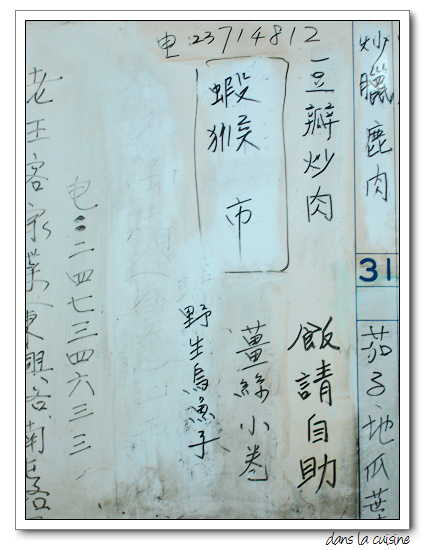 电:23714812
炒臘鹿肉
豆瓣炒肉
蝦猴 市
31
茄子地瓜葉
飯請自助
薑絲小卷
野生烏魚子
电:二四七三四六三三
老王客家
dans la cuisine